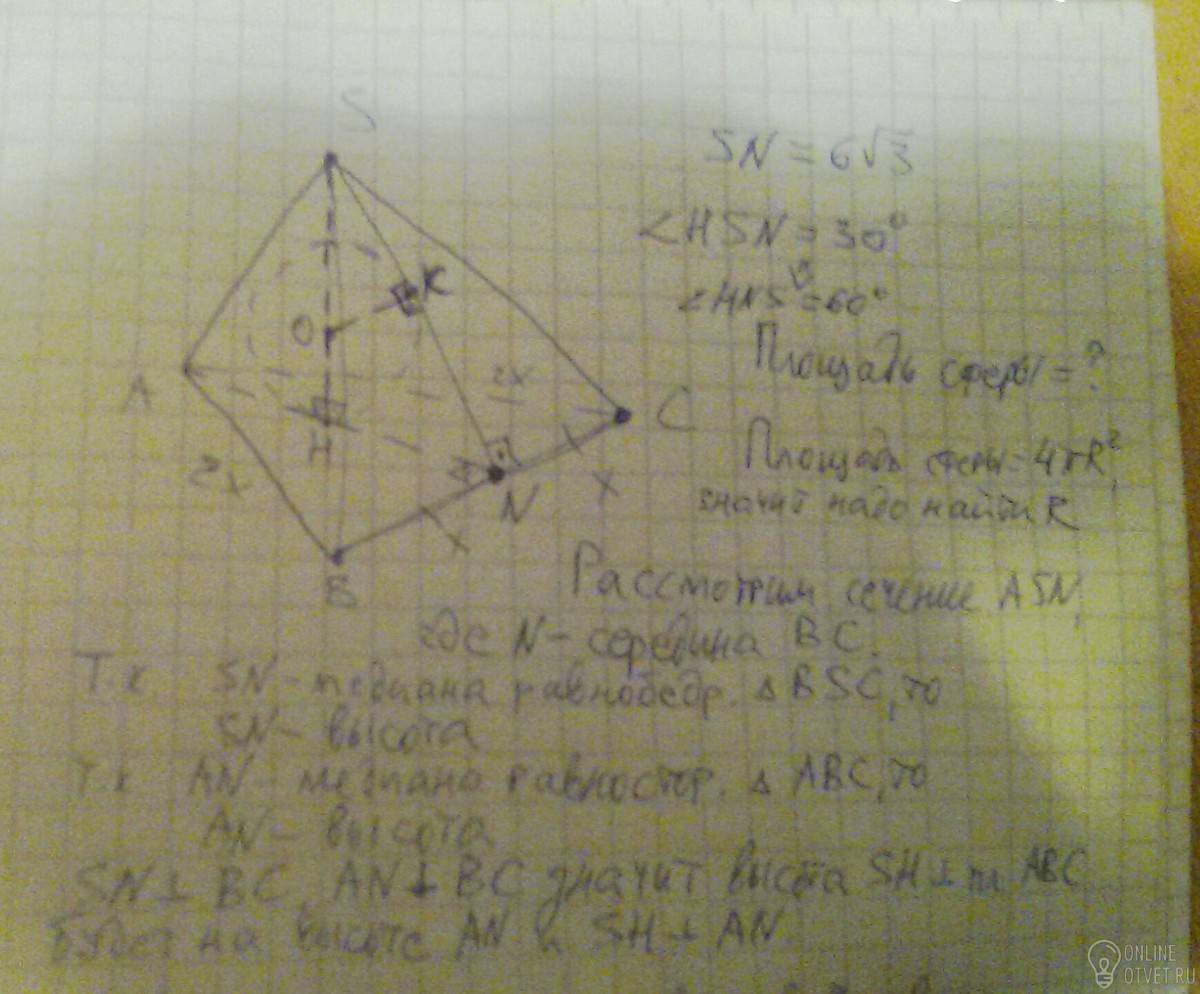 S
SN = 6√3
∠HSN = 30°
⇓
∠HNS = 60°
Площадь сферы = ?
Площадь сферы = 4πR²,
значит надо найти R
K
O
A
2x
C
H
2x
N
x
x
B
Рассмотрим сечение ASN,
где N - середина BC.
Т.к SN - медиана равнобедр. △ BSC, то
SN - высота
Т.к AN - медиана равностор. △ ABC, то
AN - высота
SN ⊥ BC, AN ⊥ BC значит выста SH ⊥ пл ABC
будет на высоте AN и SH ⊥ AN.
ONLINE
OTVET.RU